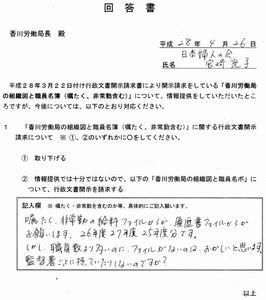 回 答 書
香川労働局長　殿
平成 28 年 4 月 26 日
日本婦人の会
氏名
平成２８年３月２２日付け行政文書開示請求書により開示請求をしている「香川労働局
の組織図と職員名簿（嘱たく、非常勤含む）」について、情報提供をしていただいたと
ころですが、今後については、以下のとおり対応ください。
１　「香川労働局の組織図と職員名簿（嘱たく、非常勤含む）」に関する行政文書開示
請求について　※①、②のいずれかに○をしてください。
①　取り下げる
②　情報提供では十分ではないので、以下の「香川労働局の組織図と職員名ボ」につ
いて、行政文書開示を請求する
記入欄　※ 嘱たく・非常勤を含むのか等、具体的にご記入願います。
嘱たく、非常勤の給料ファイルからか、履歴書ファイルからか
お願いします。26年度27年度25年度分です。
しかし、職員数より方いのに、ファイルがないのは、おかしいと思います。
監督署ごとに持っていたりしないのですか？
以上